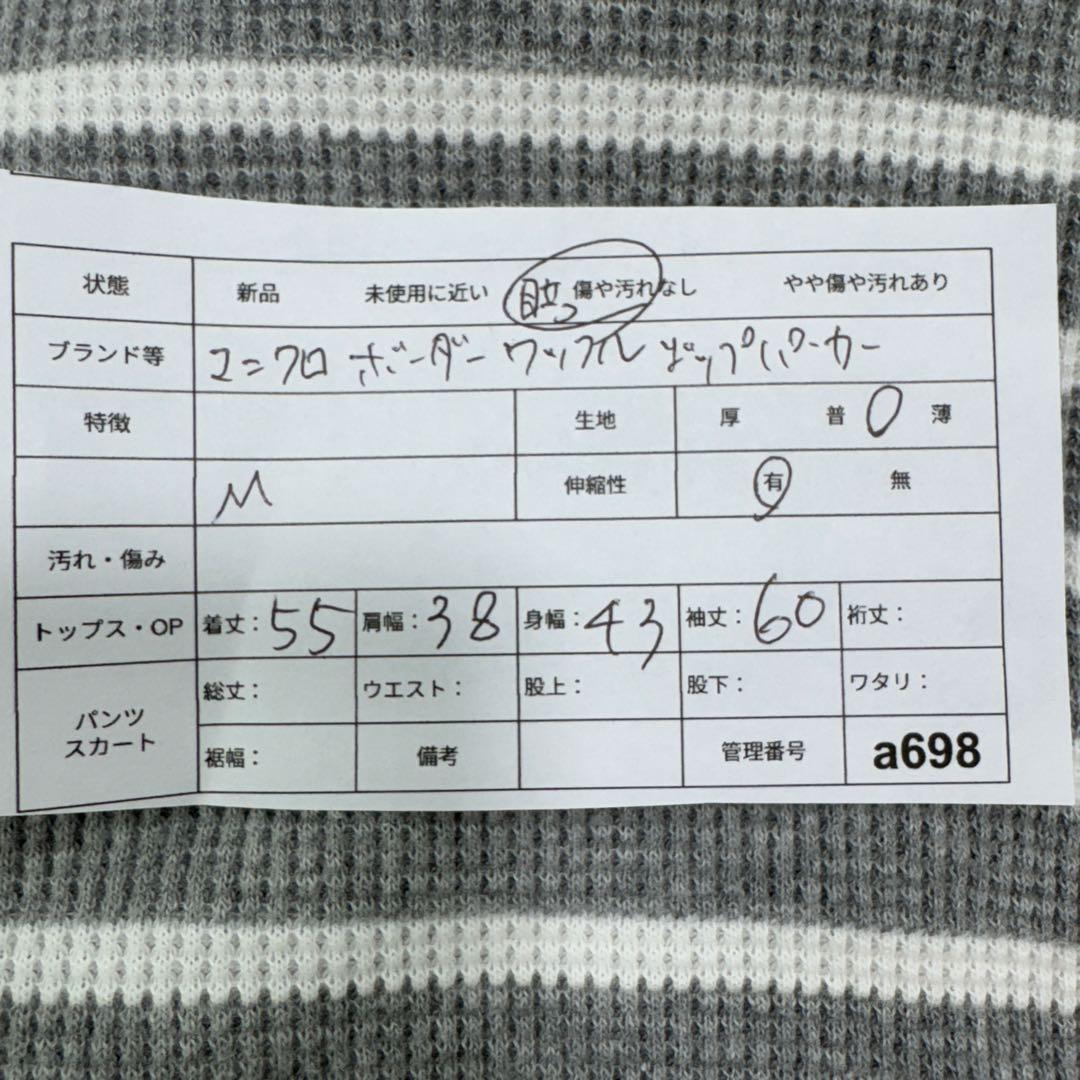 状態 新品 未使用に近い 目立つ傷や汚れなし やや傷や汚れあり
ブランド等 ユニクロ ボーダー ワッフル ジップパーカー
特徴 生地 厚 普 薄
M 伸縮性 有 無
汚れ・傷み
トップス・OP 着丈：55 肩幅：38 身幅：43 袖丈：60 裄丈：
パンツ スカート 総丈： ウエスト： 股上： 股下： ワタリ：
裾幅： 備考 管理番号 a698